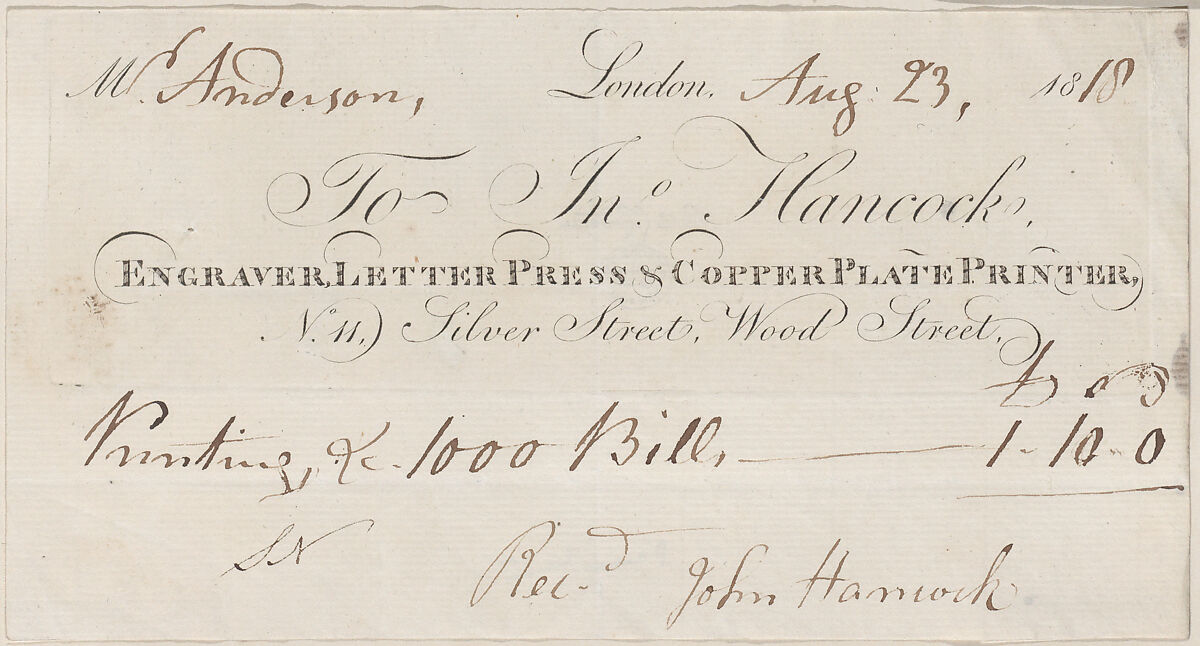 Mr. Anderson, London, Aug: 23, 1818
To Jno. Hancock,
ENGRAVER, LETTER PRESS & COPPER PLATE PRINTER,
No. 11, Silver Street, Wood Street,
£ s d
Printing, &c. 1000 Bills — 1 - 10 - 0
Rec.d John Hancock